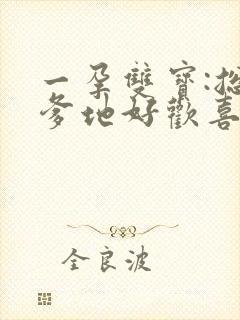 一孕雙寶:總
爹地好歡喜
全良波